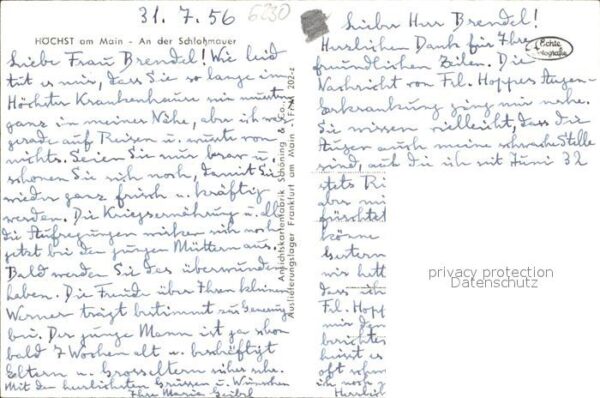 31. 7. 56
6230
HÖCHST am Main - An der Schloßmauer
Liebe Frau Brendel! Wie leid
tut es mir, dass Sie so lange im
Höchster Krankenhause sein mussten
ganz in meiner Nähe, aber ich war
gerade auf Reisen u. wusste von
nichts. Seien Sie nur brav u.
schonen Sie sich noch, damit Sie
wieder ganz frisch u. kräftig
werden. Die Kriegsernährung u. all
die Aufregungen wirken sich noch
jetzt bei den jungen Müttern aus.
Bald werden Sie das überwunden
haben. Die Freude über Ihren kleinen
Werner trägt bestimmt zur Genesung
bei. Der junge Mann ist ja schon
bald 7 Wochen alt u. beschäftigt
Eltern u. Grosseltern sicher sehr.
Mit den herzlichsten Grüssen u. Wünschen
Ihre Maria
Ansichtskartenfabrik Schöning & Co.,
Auslieferungslager Frankfurt am Main AFAM 202-z
Liebe Herr Brendel!
Herzlichen Dank für Ihre
freundlichen Zeilen. Die
Nachricht von Frl. Hoppes Augen-
erkrankung ging mir nahe.
Sie wissen vielleicht, dass die
Augen auch meine schwache Stelle
sind, auf die ich seit Juni 32
stets
aber
könne
Gestern
mir
dass ich
Frl. Hopp
mir den
berichte
heisst es
oft schon
ich noch
Herzlich
Echte
Fotografie
privacy protection
Datenschutz